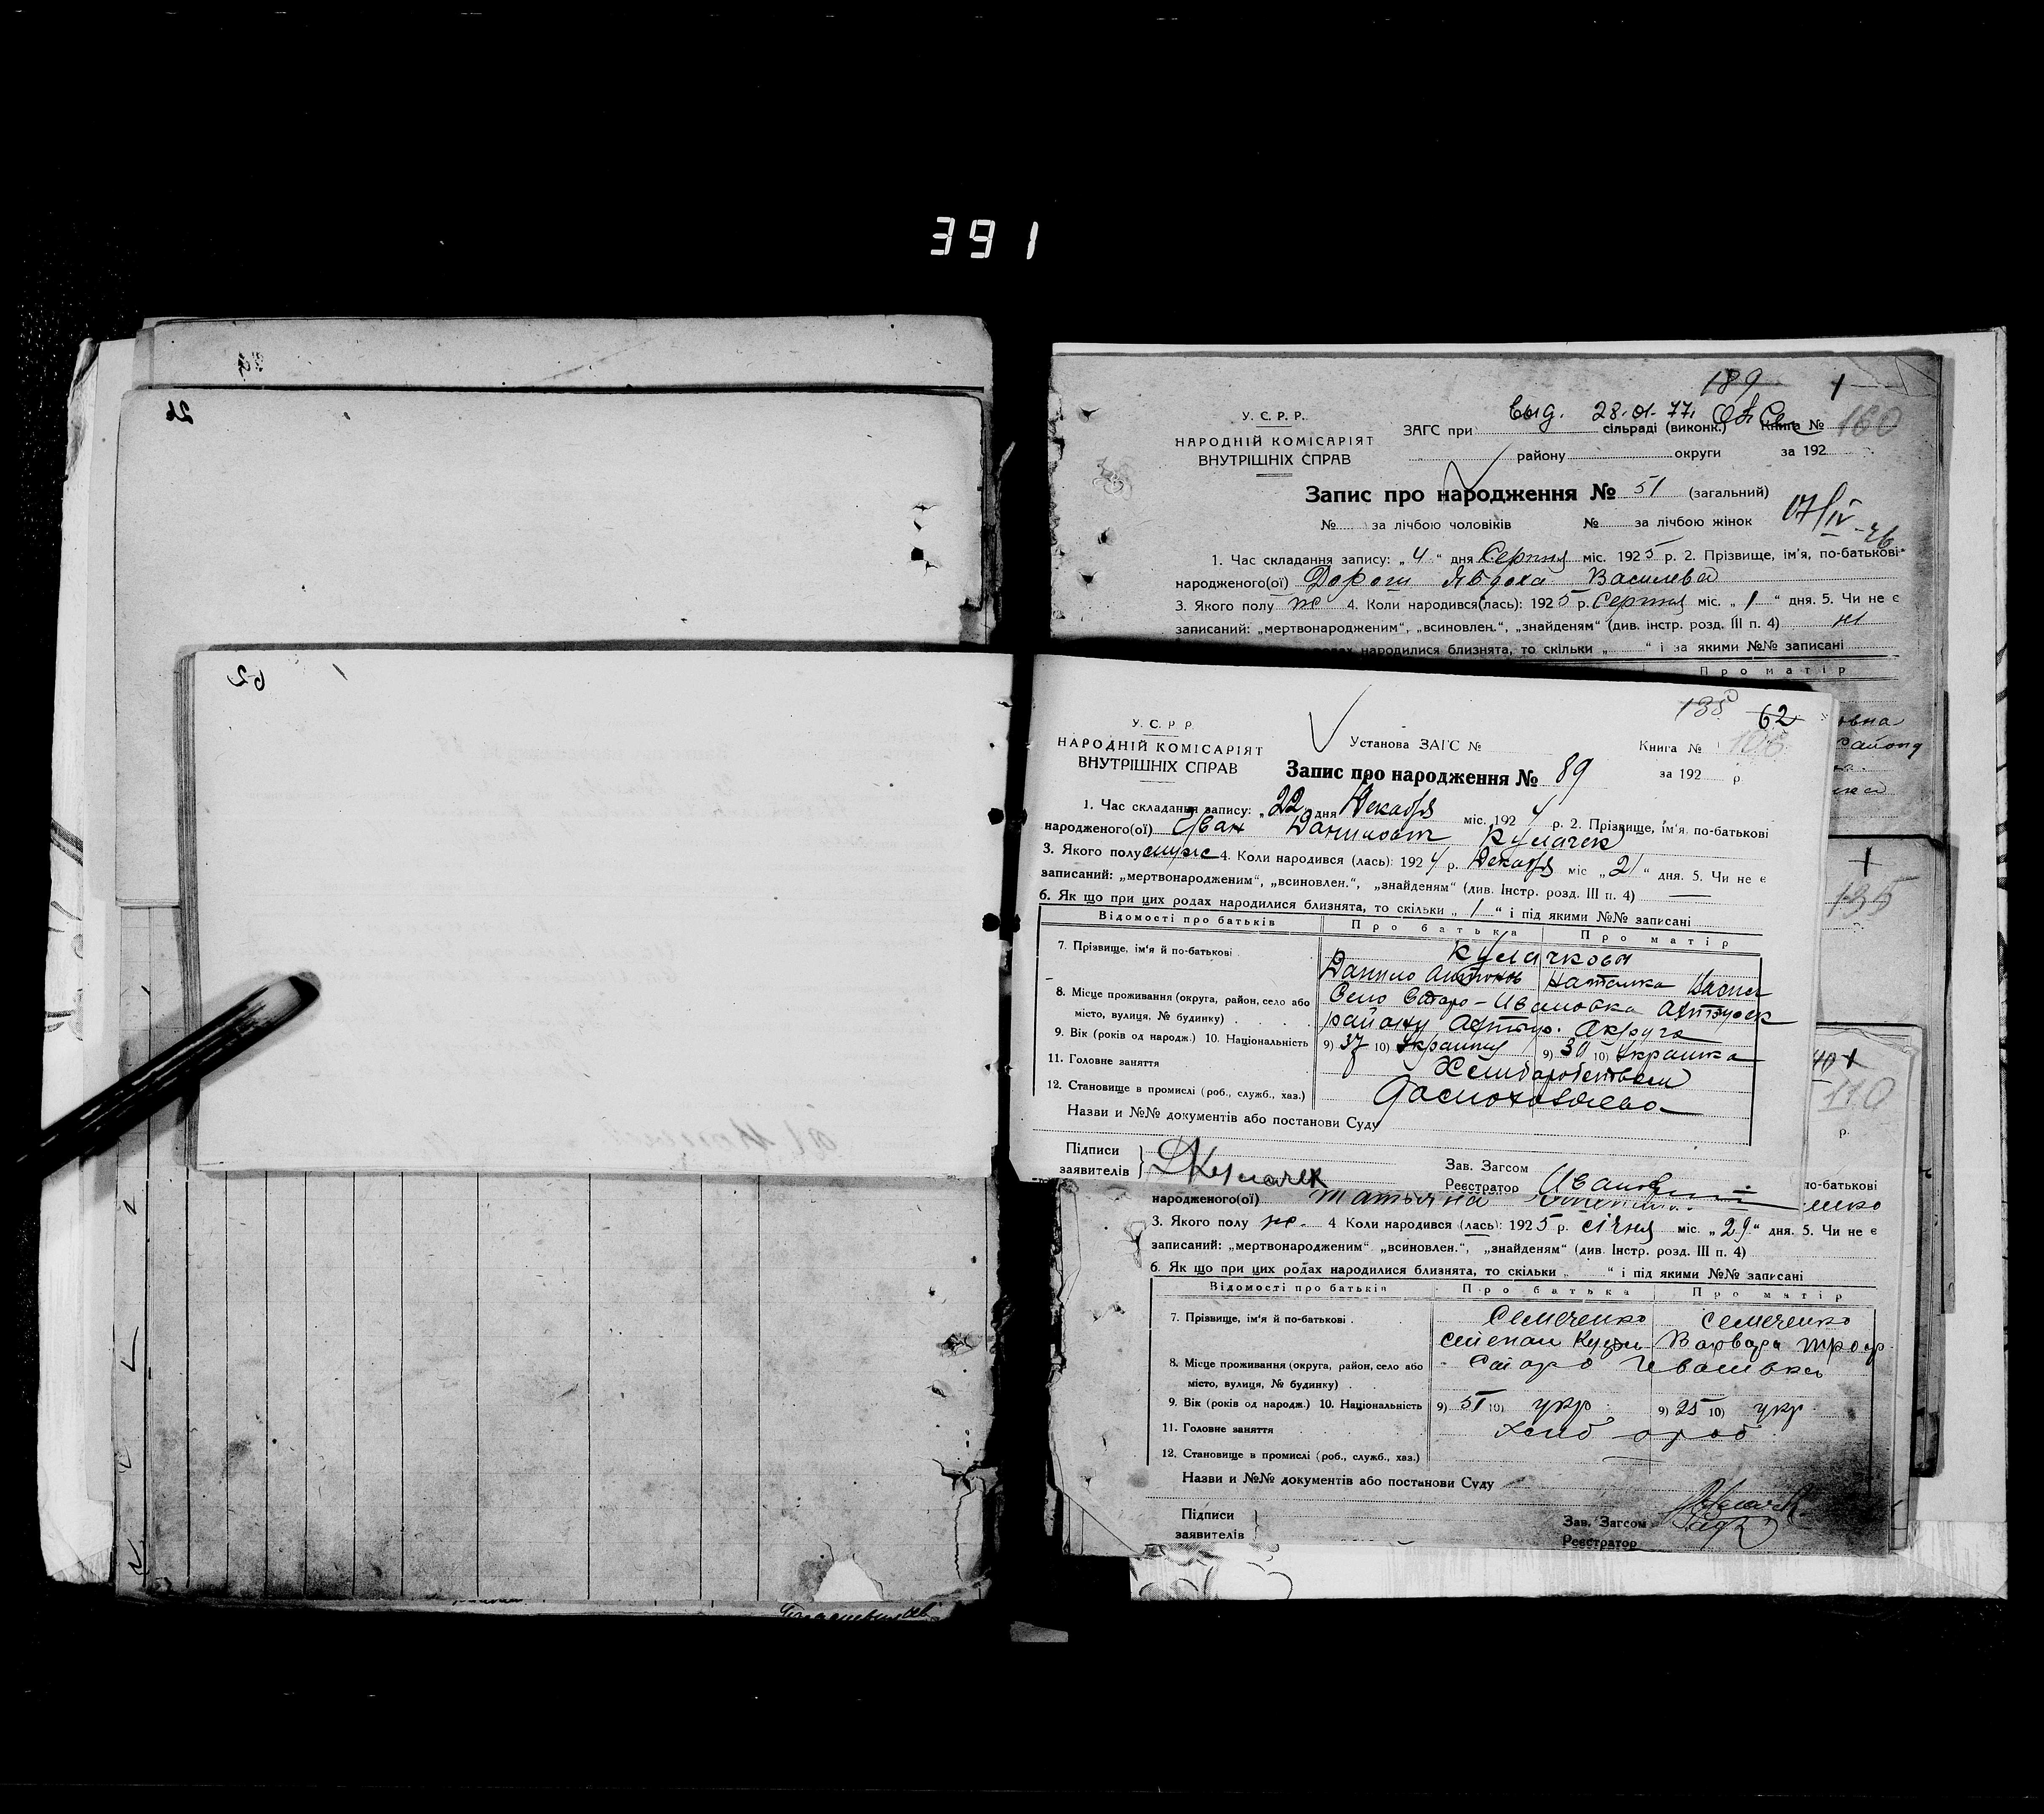 391
26
62
189
выд. 28.01.77.
У. С. Р. Р.
НАРОДНІЙ КОМІСАРІЯТ
ВНУТРІШНІХ СПРАВ
ЗАГС при сільраді (виконк.) Книга № 160
району округи за 192
Запис про народження № 51 (загальний)
№ за лічбою чоловіків № за лічбою жінок 17/IV-26
1. Час складання запису: „ 4 “ дня Серпня міс. 1925 р. 2. Прізвище, ім'я, по-батькові
народженого(ої) Дорош Явдоха Василева
3. Якого полу ж 4. Коли народився(лась): 1925 р. Серпня міс. „ 1 “ дня. 5. Чи не є
записаний: „мертвонародженим“, „всиновлен.“, „знайденям“ (див. інстр. розд. III п. 4) ні
родах народилися близнята, то скільки „ “ і за якими №№ записані
Про матір
овна
району
138 62
У. С. Р. Р.
НАРОДНІЙ КОМІСАРІЯТ
ВНУТРІШНІХ СПРАВ
Установа ЗАГС № Книга №
Запис про народження № 89 за 192 р.
1. Час складання запису: „ 22 “ дня Декабря міс. 1924 р. 2. Прізвище, ім'я, по-батькові
народженого(ої) Іван Данилов Кулачек
3. Якого полу муж 4. Коли народився (лась): 1924 р. Декабря міс „ 21 “ дня. 5. Чи не є
записаний: „мертвонародженим“, „всиновлен.“, „знайденям“ (див. Інстр. розд. III п. 4) —
6. Як що при цих родах народилися близнята, то скільки „ 1 “ і під якими №№ записані
Відомості про батьків Про батька Про матір
7. Прізвище, ім'я й по-батькові Кулачкова
Данило Антонов Наталка
8. Місце проживання (округа, район, село або Село Старо-Ивановка Ахтырск
місто, вулиця, № будинку) району Ахтыр. Акруга
9. Вік (років од народж.) 10. Національність 9) 37 10) Украинц 9) 30 10) Украинка
11. Головне заняття Хлиборобством
12. Становище в промислі (роб., служб., хаз.)
Назви и №№ документів або постанови Суду
Підписи
заявителів Д Кулачек
Зав. Загсом
Реєстратор
135
110
р.
по-батькові
народженого(ої) Татьяна
3. Якого полу ж. 4 Коли народився (лась): 1925 р. січня міс. „29“ дня. 5. Чи не є
записаний: „мертвонародженим“ „всиновлен.“, „знайденям“ (див. Інстр. розд. III п. 4)
6. Як що при цих родах народилися близнята, то скільки „ “ і під якими №№ записані
Відомості про батьків Про батька Про матір
7. Прізвище, ім'я й по-батькові Семененко Семененко
Степан Варвара
8. Місце проживання (округа, район, село або Старо Ивановка
місто, вулиця, № будинку)
9. Вік (років од народж.) 10. Національність 9) 51 10) укр 9) 25 10) укр.
11. Головне заняття хлебороб
12. Становище в промислі (роб., служб., хаз.)
Назви и №№ документів або постанови Суду
Підписи
заявителів
Зав. Загсом
Реєстратор